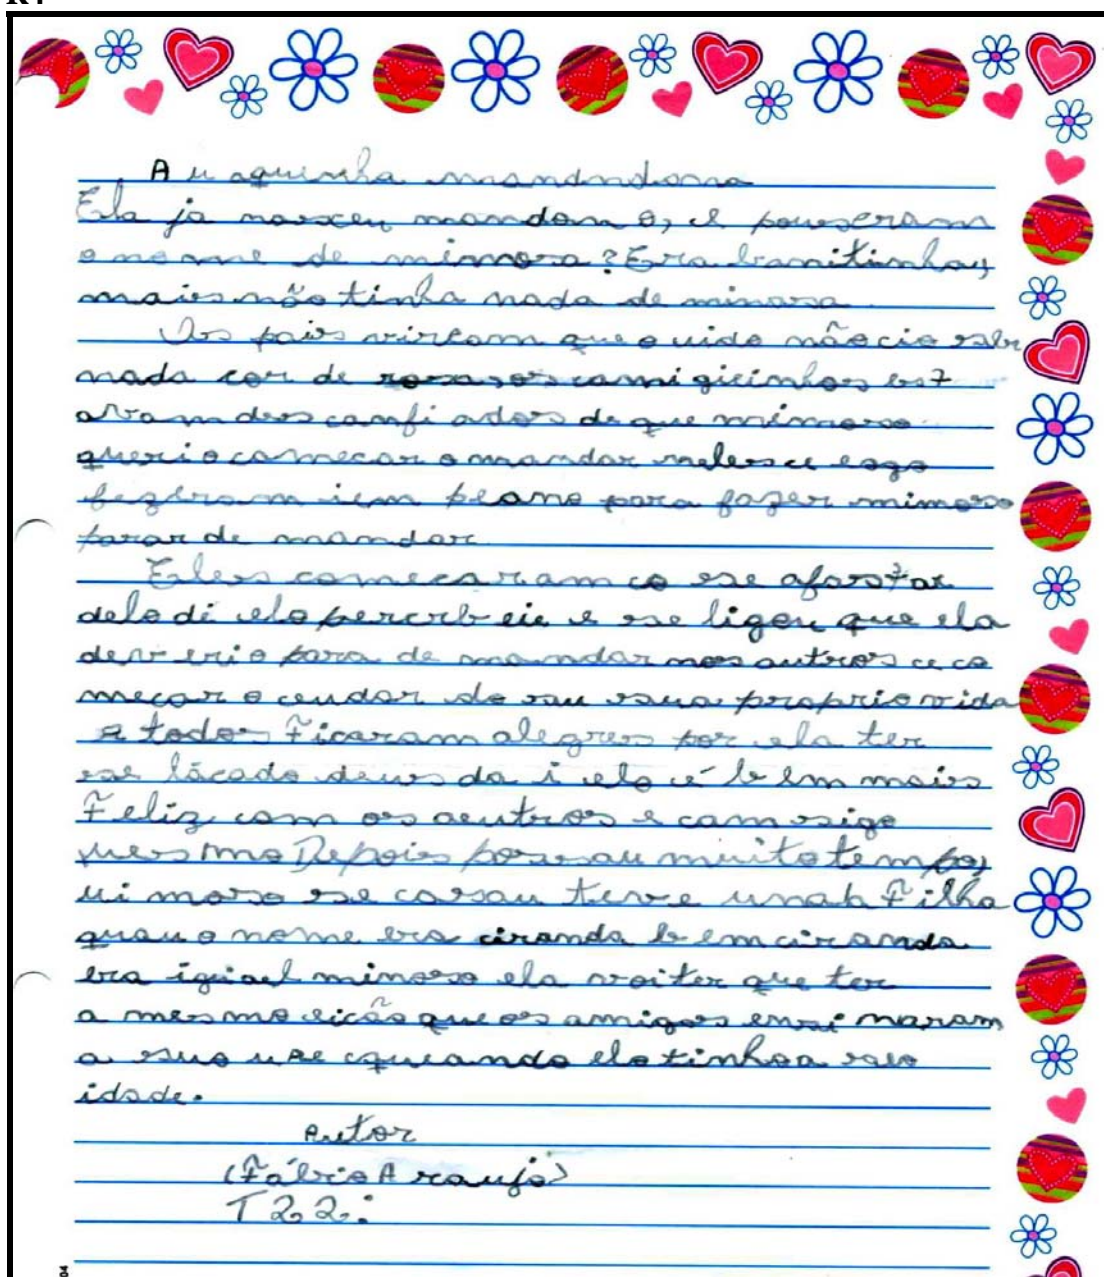 A u aquinha mandadona
Ela ja nasceu mandona, e pouseram
o nome de mimosa? Era banitinha,
mais não tinha nada de mimosa
Os pais viram que o vida não cia
nada cor de rosa os amiguinhos est
avam desconfiados de que mimosa
queria comecar o mandar neles e logo
fezeram um plano para fazer mimosa
parar de mandar
Eles comecaram a se afastar
dela di ela percebeu e se ligou que ela
deveria para de mandar nos outros e co
meçar o cuidar da sua propria vida
e todos ficaram alegres por ela ter
se tácado ela é bem mais
Feliz com os outros e com sigo
mesmo Depois passou muito tempo,
mimosa se casou teve uma Filha
o nome era ciranda bem ciranda
era igual mimosa ela vai ter que ter
a mesmo lição que os amigos ensinaram
a sua mãe quando ela tinha sua
idade.
Autor
(Fábio Araujo)
T22: